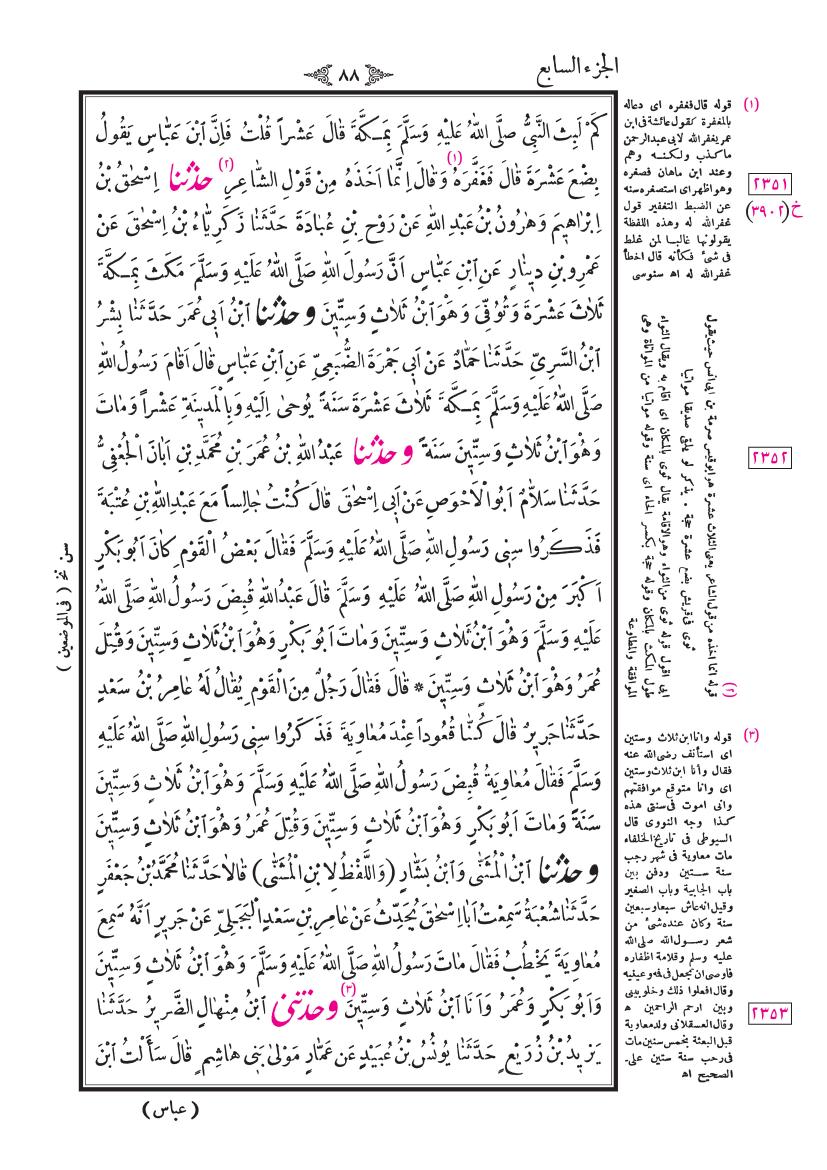 الجزء السابع
٨٨
كَمْ لَبِثَ النَّبِيُّ صَلَّى اللهُ عَلَيْهِ وَسَلَّمَ بِمَكَّةَ قَالَ عَشْراً قُلْتُ فَإِنَّ ابْنَ عَبَّاسٍ يَقُولُ
بِضْعَ عَشْرَةَ قَالَ فَغَفَّرَهُ (١) وَقَالَ اِنَّمَا اَخَذَهُ مِنْ قَوْلِ الشَّاعِرِ (٢) حَدَّثَنَا اِسْحٰقُ بْنُ
اِبْرَاهِيمَ وَهٰرُونُ بْنُ عَبْدِ اللهِ عَنْ رَوْحِ بْنِ عُبَادَةَ حَدَّثَنَا زَكَرِيَّاءُ بْنُ اِسْحٰقَ عَنْ
عَمْرِو بْنِ دِينَارٍ عَنِ ابْنِ عَبَّاسٍ اَنَّ رَسُولَ اللهِ صَلَّى اللهُ عَلَيْهِ وَسَلَّمَ مَكَثَ بِمَكَّةَ
ثَلَاثَ عَشْرَةَ وَتُوُفِّىَ وَهُوَ ابْنُ ثَلَاثٍ وَسِتِّينَ وَحَدَّثَنَا ابْنُ اَبِى عُمَرَ حَدَّثَنَا بِشْرُ
ابْنُ السَّرِىِّ حَدَّثَنَا حَمَّادٌ عَنْ اَبِى جَمْرَةَ الضُّبَعِىِّ عَنِ ابْنِ عَبَّاسٍ قَالَ اَقَامَ رَسُولُ اللهِ
صَلَّى اللهُ عَلَيْهِ وَسَلَّمَ بِمَكَّةَ ثَلَاثَ عَشْرَةَ سَنَةً يُوحٰى اِلَيْهِ وَبِالْمَدِينَةِ عَشْراً وَمَاتَ
وَهُوَ ابْنُ ثَلَاثٍ وَسِتِّينَ سَنَةً وَحَدَّثَنَا عَبْدُ اللهِ بْنُ عُمَرَ بْنِ مُحَمَّدِ بْنِ اَبَانَ الْجُعْفِىُّ
حَدَّثَنَا سَلَّامٌ اَبُو الْاَحْوَصِ عَنْ اَبِى اِسْحٰقَ قَالَ كُنْتُ جَالِساً مَعَ عَبْدِ اللهِ بْنِ عُتْبَةَ
فَذَكَرُوا سِنِى رَسُولِ اللهِ صَلَّى اللهُ عَلَيْهِ وَسَلَّمَ فَقَالَ بَعْضُ الْقَوْمِ كَانَ اَبُو بَكْرٍ
اَكْبَرَ مِنْ رَسُولِ اللهِ صَلَّى اللهُ عَلَيْهِ وَسَلَّمَ قَالَ عَبْدُ اللهِ قُبِضَ رَسُولُ اللهِ صَلَّى اللهُ
عَلَيْهِ وَسَلَّمَ وَهُوَ ابْنُ ثَلَاثٍ وَسِتِّينَ وَمَاتَ اَبُو بَكْرٍ وَهُوَ ابْنُ ثَلَاثٍ وَسِتِّينَ وَقُتِلَ
عُمَرُ وَهُوَ ابْنُ ثَلَاثٍ وَسِتِّينَ * قَالَ فَقَالَ رَجُلٌ مِنَ الْقَوْمِ يُقَالُ لَهُ عَامِرُ بْنُ سَعْدٍ
حَدَّثَنَا جَرِيرٌ قَالَ كُنَّا قُعُوداً عِنْدَ مُعَاوِيَةَ فَذَكَرُوا سِنِى رَسُولِ اللهِ صَلَّى اللهُ عَلَيْهِ
وَسَلَّمَ فَقَالَ مُعَاوِيَةُ قُبِضَ رَسُولُ اللهِ صَلَّى اللهُ عَلَيْهِ وَسَلَّمَ وَهُوَ ابْنُ ثَلَاثٍ وَسِتِّينَ
سَنَةً وَمَاتَ اَبُو بَكْرٍ وَهُوَ ابْنُ ثَلَاثٍ وَسِتِّينَ وَقُتِلَ عُمَرُ وَهُوَ ابْنُ ثَلَاثٍ وَسِتِّينَ
وَحَدَّثَنَا ابْنُ الْمُثَنّٰى وَابْنُ بَشَّارٍ (وَاللَّفْظُ لِابْنِ الْمُثَنّٰى) قَالَا حَدَّثَنَا مُحَمَّدُ بْنُ جَعْفَرٍ
حَدَّثَنَا شُعْبَةُ سَمِعْتُ اَبَا اِسْحٰقَ يُحَدِّثُ عَنْ عَامِرِ بْنِ سَعْدٍ الْبَجَلِىِّ عَنْ جَرِيرٍ اَنَّهُ سَمِعَ
مُعَاوِيَةَ يَخْطُبُ فَقَالَ مَاتَ رَسُولُ اللهِ صَلَّى اللهُ عَلَيْهِ وَسَلَّمَ وَهُوَ ابْنُ ثَلَاثٍ وَسِتِّينَ
وَاَبُو بَكْرٍ وَعُمَرُ وَاَنَا ابْنُ ثَلَاثٍ وَسِتِّينَ (٣) وَحَدَّثَنِى ابْنُ مِنْهَالٍ الضَّرِيرُ حَدَّثَنَا
يَزِيدُ بْنُ زُرَيْعٍ حَدَّثَنَا يُونُسُ بْنُ عُبَيْدٍ عَنْ عَمَّارٍ مَوْلٰى بَنِى هَاشِمٍ قَالَ سَأَلْتُ ابْنَ
(عباس)
(١) قوله قال فغفره اى دعاله
بالمغفرة كقول عائشة فى ابن
عمر يغفر الله لابى عبدالرحمن
ما كذب ولكنه وهم
وعند ابن ماهان فصغره
وهو اظهر اى استصغره سنه
عن الضبط التغفير قول
غفرالله له وهذه اللفظة
يقولونها غالبا لمن غلط
فى شئ فكأنه قال اخطأ
غفرالله له اه سنوسى
٢٣٥١
خ (٣٩٠٢)
(٢) قوله انما اخذه من قول الشاعر يعنى الثلاث عشرة هو ابو قيس صرمة بن ابى انس حيث يقول
ثوى فى قريش بضع عشرة حجة . يذكر لو يلقى صديقا مواتيا
ابى اقول قوله ثوى من الثواء وهو الاقامة يقال ثوى بالمكان اى اقام به ويقال الثواء
طول المكث بالمكان وقوله حجة بكسر الحاء اى سنة وقوله مواتيا من المواتاة وهى
الموافقة والمطاوعة
٢٣٥٢
(٣) قوله وانا ابن ثلاث وستين
اى استأنف رضى الله عنه
فقال وأنا ابن ثلاث وستين
اى وانا متوقع موافقتهم
وانى اموت فى سنتى هذه
كذا وجه النووى قال
السيوطى فى تاريخ الخلفاء
مات معاوية فى شهر رجب
سنة ستين ودفن بين
باب الجابية وباب الصغير
وقيل انه عاش سبعا وسبعين
سنة وكان عنده شئ من
شعر رسول الله صلى الله
عليه وسلم وقلامة اظفاره
فاوصى ان تجعل فى فه وعينيه
وقال افعلوا ذلك وخلوا بينى
وبين ارحم الراحمين ه
وقال العسقلانى ولد معاوية
قبل البعثة بخمس سنين مات
فى رجب سنة ستين على
الصحيح اه
٢٣٥٣
سن نخ (فى الموضعين)